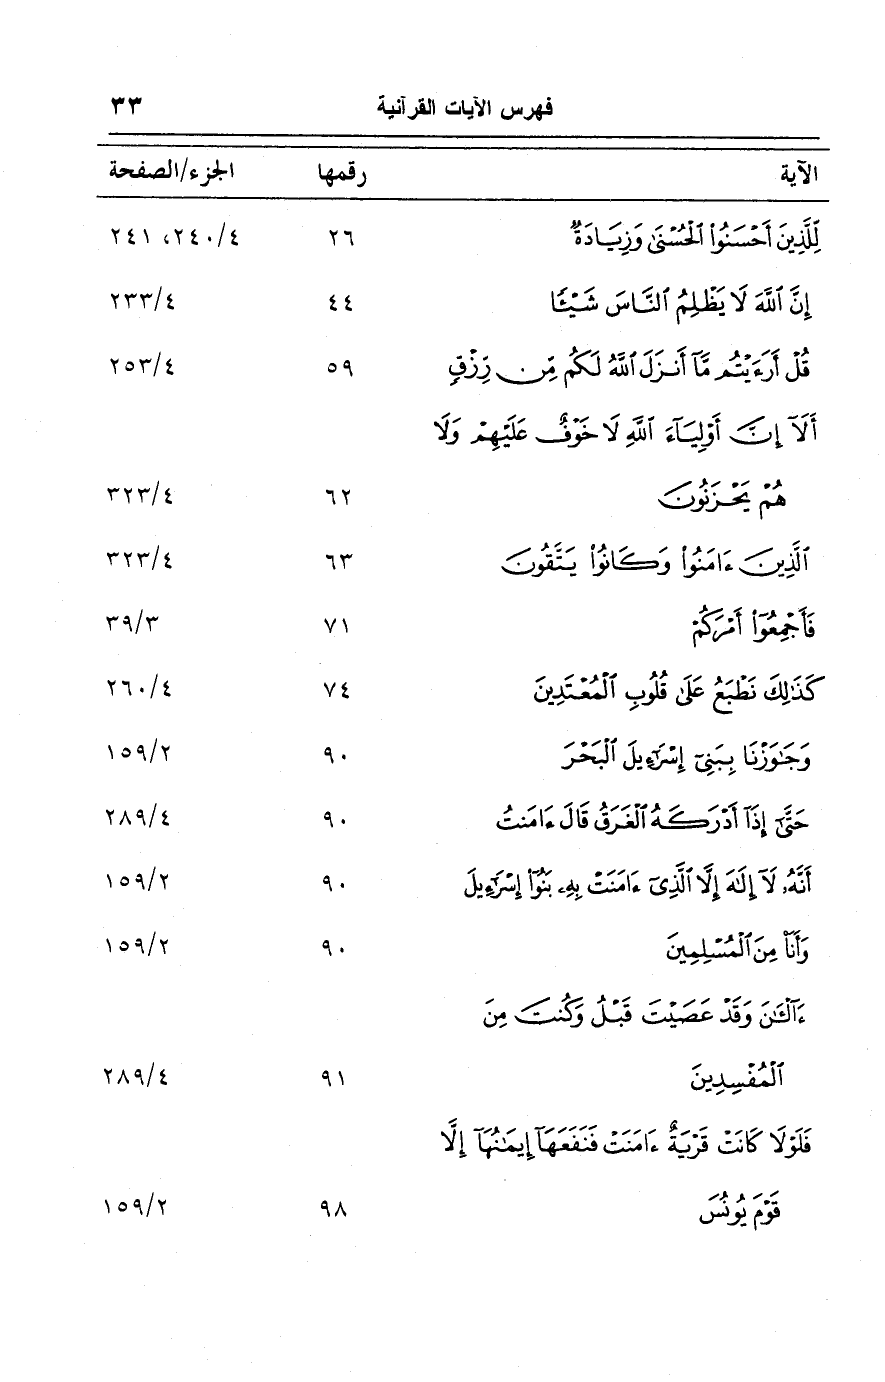 فهرس الآيات القرآنية ٣٣
الآية رقمها الجزء/الصفحة
لِّلَّذِينَ أَحْسَنُوا۟ ٱلْحُسْنَىٰ وَزِيَادَةٌ ٢٦ ٢٤٠/٤، ٢٤١
إِنَّ ٱللَّهَ لَا يَظْلِمُ ٱلنَّاسَ شَيْـًٔا ٤٤ ٢٣٣/٤
قُلْ أَرَءَيْتُم مَّآ أَنزَلَ ٱللَّهُ لَكُم مِّن رِّزْقٍ ٥٩ ٢٥٣/٤
أَلَآ إِنَّ أَوْلِيَآءَ ٱللَّهِ لَا خَوْفٌ عَلَيْهِمْ وَلَا
هُمْ يَحْزَنُونَ ٦٢ ٣٢٣/٤
ٱلَّذِينَ ءَامَنُوا۟ وَكَانُوا۟ يَتَّقُونَ ٦٣ ٣٢٣/٤
فَأَجْمِعُوٓا۟ أَمْرَكُمْ ٧١ ٣٩/٣
كَذَٰلِكَ نَطْبَعُ عَلَىٰ قُلُوبِ ٱلْمُعْتَدِينَ ٧٤ ٢٦٠/٤
وَجَٰوَزْنَا بِبَنِىٓ إِسْرَٰٓءِيلَ ٱلْبَحْرَ ٩٠ ١٥٩/٢
حَتَّىٰٓ إِذَآ أَدْرَكَهُ ٱلْغَرَقُ قَالَ ءَامَنتُ ٩٠ ٢٨٩/٤
أَنَّهُۥ لَآ إِلَٰهَ إِلَّا ٱلَّذِىٓ ءَامَنَتْ بِهِۦ بَنُوٓا۟ إِسْرَٰٓءِيلَ ٩٠ ١٥٩/٢
وَأَنَا۠ مِنَ ٱلْمُسْلِمِينَ ٩٠ ١٥٩/٢
ءَآلْـَٰٔنَ وَقَدْ عَصَيْتَ قَبْلُ وَكُنتَ مِنَ
ٱلْمُفْسِدِينَ ٩١ ٢٨٩/٤
فَلَوْلَا كَانَتْ قَرْيَةٌ ءَامَنَتْ فَنَفَعَهَآ إِيمَٰنُهَآ إِلَّا
قَوْمَ يُونُسَ ٩٨ ١٥٩/٢